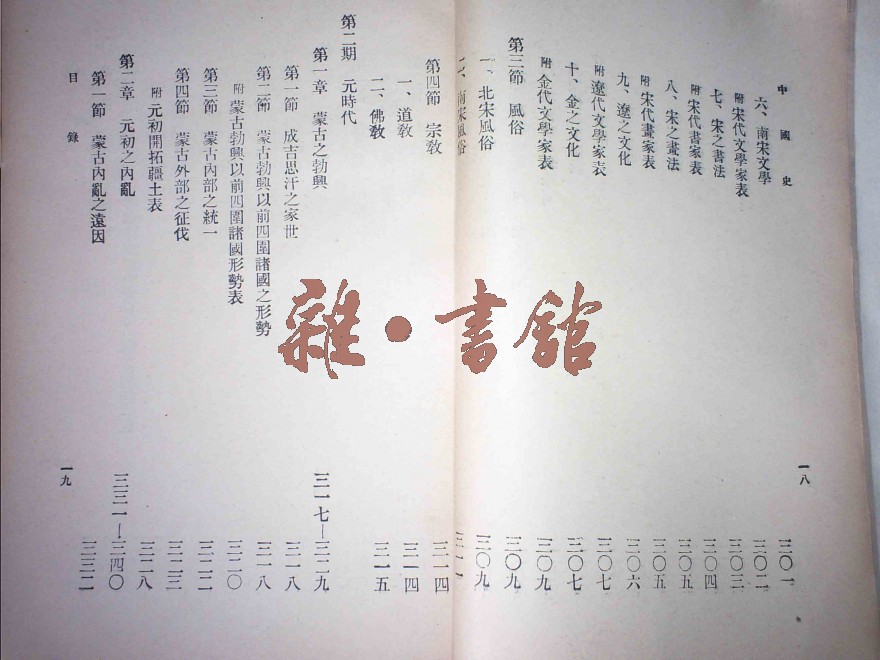 中國史
一八
六、南宋文學 三〇一
附 宋代文學家表 三〇二
七、宋之書法 三〇三
附 宋代書家表 三〇四
八、宋之畫法 三〇五
附 宋代畫家表 三〇五
九、遼之文化 三〇六
附 遼代文學家表 三〇七
十、金之文化 三〇七
附 金代文學家表 三〇九
第三節 風俗 三〇九
一、北宋風俗 三〇九
二、南宋風俗 三一一
第四節 宗教 三一四
一、道教 三一四
二、佛教 三一五
第二期 元時代
第一章 蒙古之勃興 三一七—三二九
第一節 成吉思汗之家世 三一八
第二節 蒙古勃興以前四圍諸國之形勢 三一八
附 蒙古勃興以前四圍諸國形勢表 三二〇
第三節 蒙古內部之統一 三二二
第四節 蒙古外部之征伐 三二三
附 元初開拓疆土表 三二八
第二章 元初之內亂 三三一—三四〇
第一節 蒙古內亂之遠因 三三二
目錄
一九
雜·書館